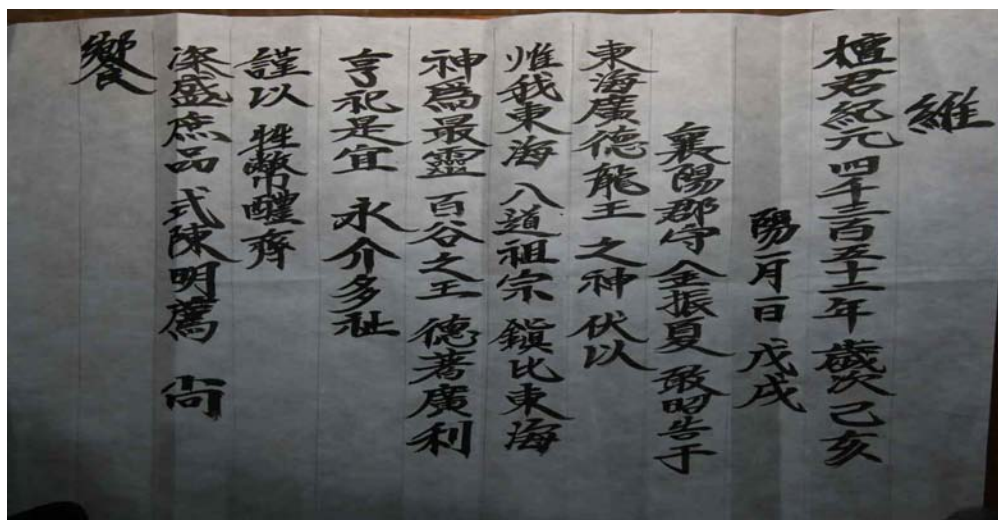 維
檀君紀元四千三百五十二年 歲次己亥
陽一月一日 戊戌
襄陽郡守 金振夏 敢昭告于
東海廣德龍王 之神 伏以
惟我東海 八道祖宗 鎭比東海
神爲最靈 百谷之王 德著廣利
亨祀是宜 永介多祉
謹以 牲幣醴齊
粢盛庶品 式陳明薦 尙
饗